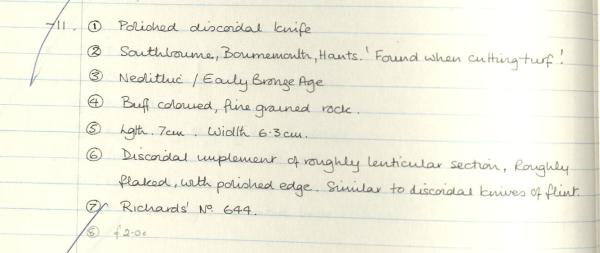 -11. ① Polished discoidal knife
② Southbourne, Bournemouth, Hants. 'Found when cutting turf'.
③ Neolithic / Early Bronze Age
④ Buff coloured, fine grained rock.
⑤ Lgth. 7cm. Width 6.3cm.
⑥ Discoidal implement of roughly lenticular section, Roughly
flaked, with polished edge. Similar to discoidal knives of flint.
⑦ Richards' No. 644.
⑧ £2.00